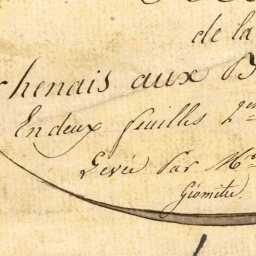 de la
henais aux
En deux feuilles 2em
Levée Par Mr
Géometre.